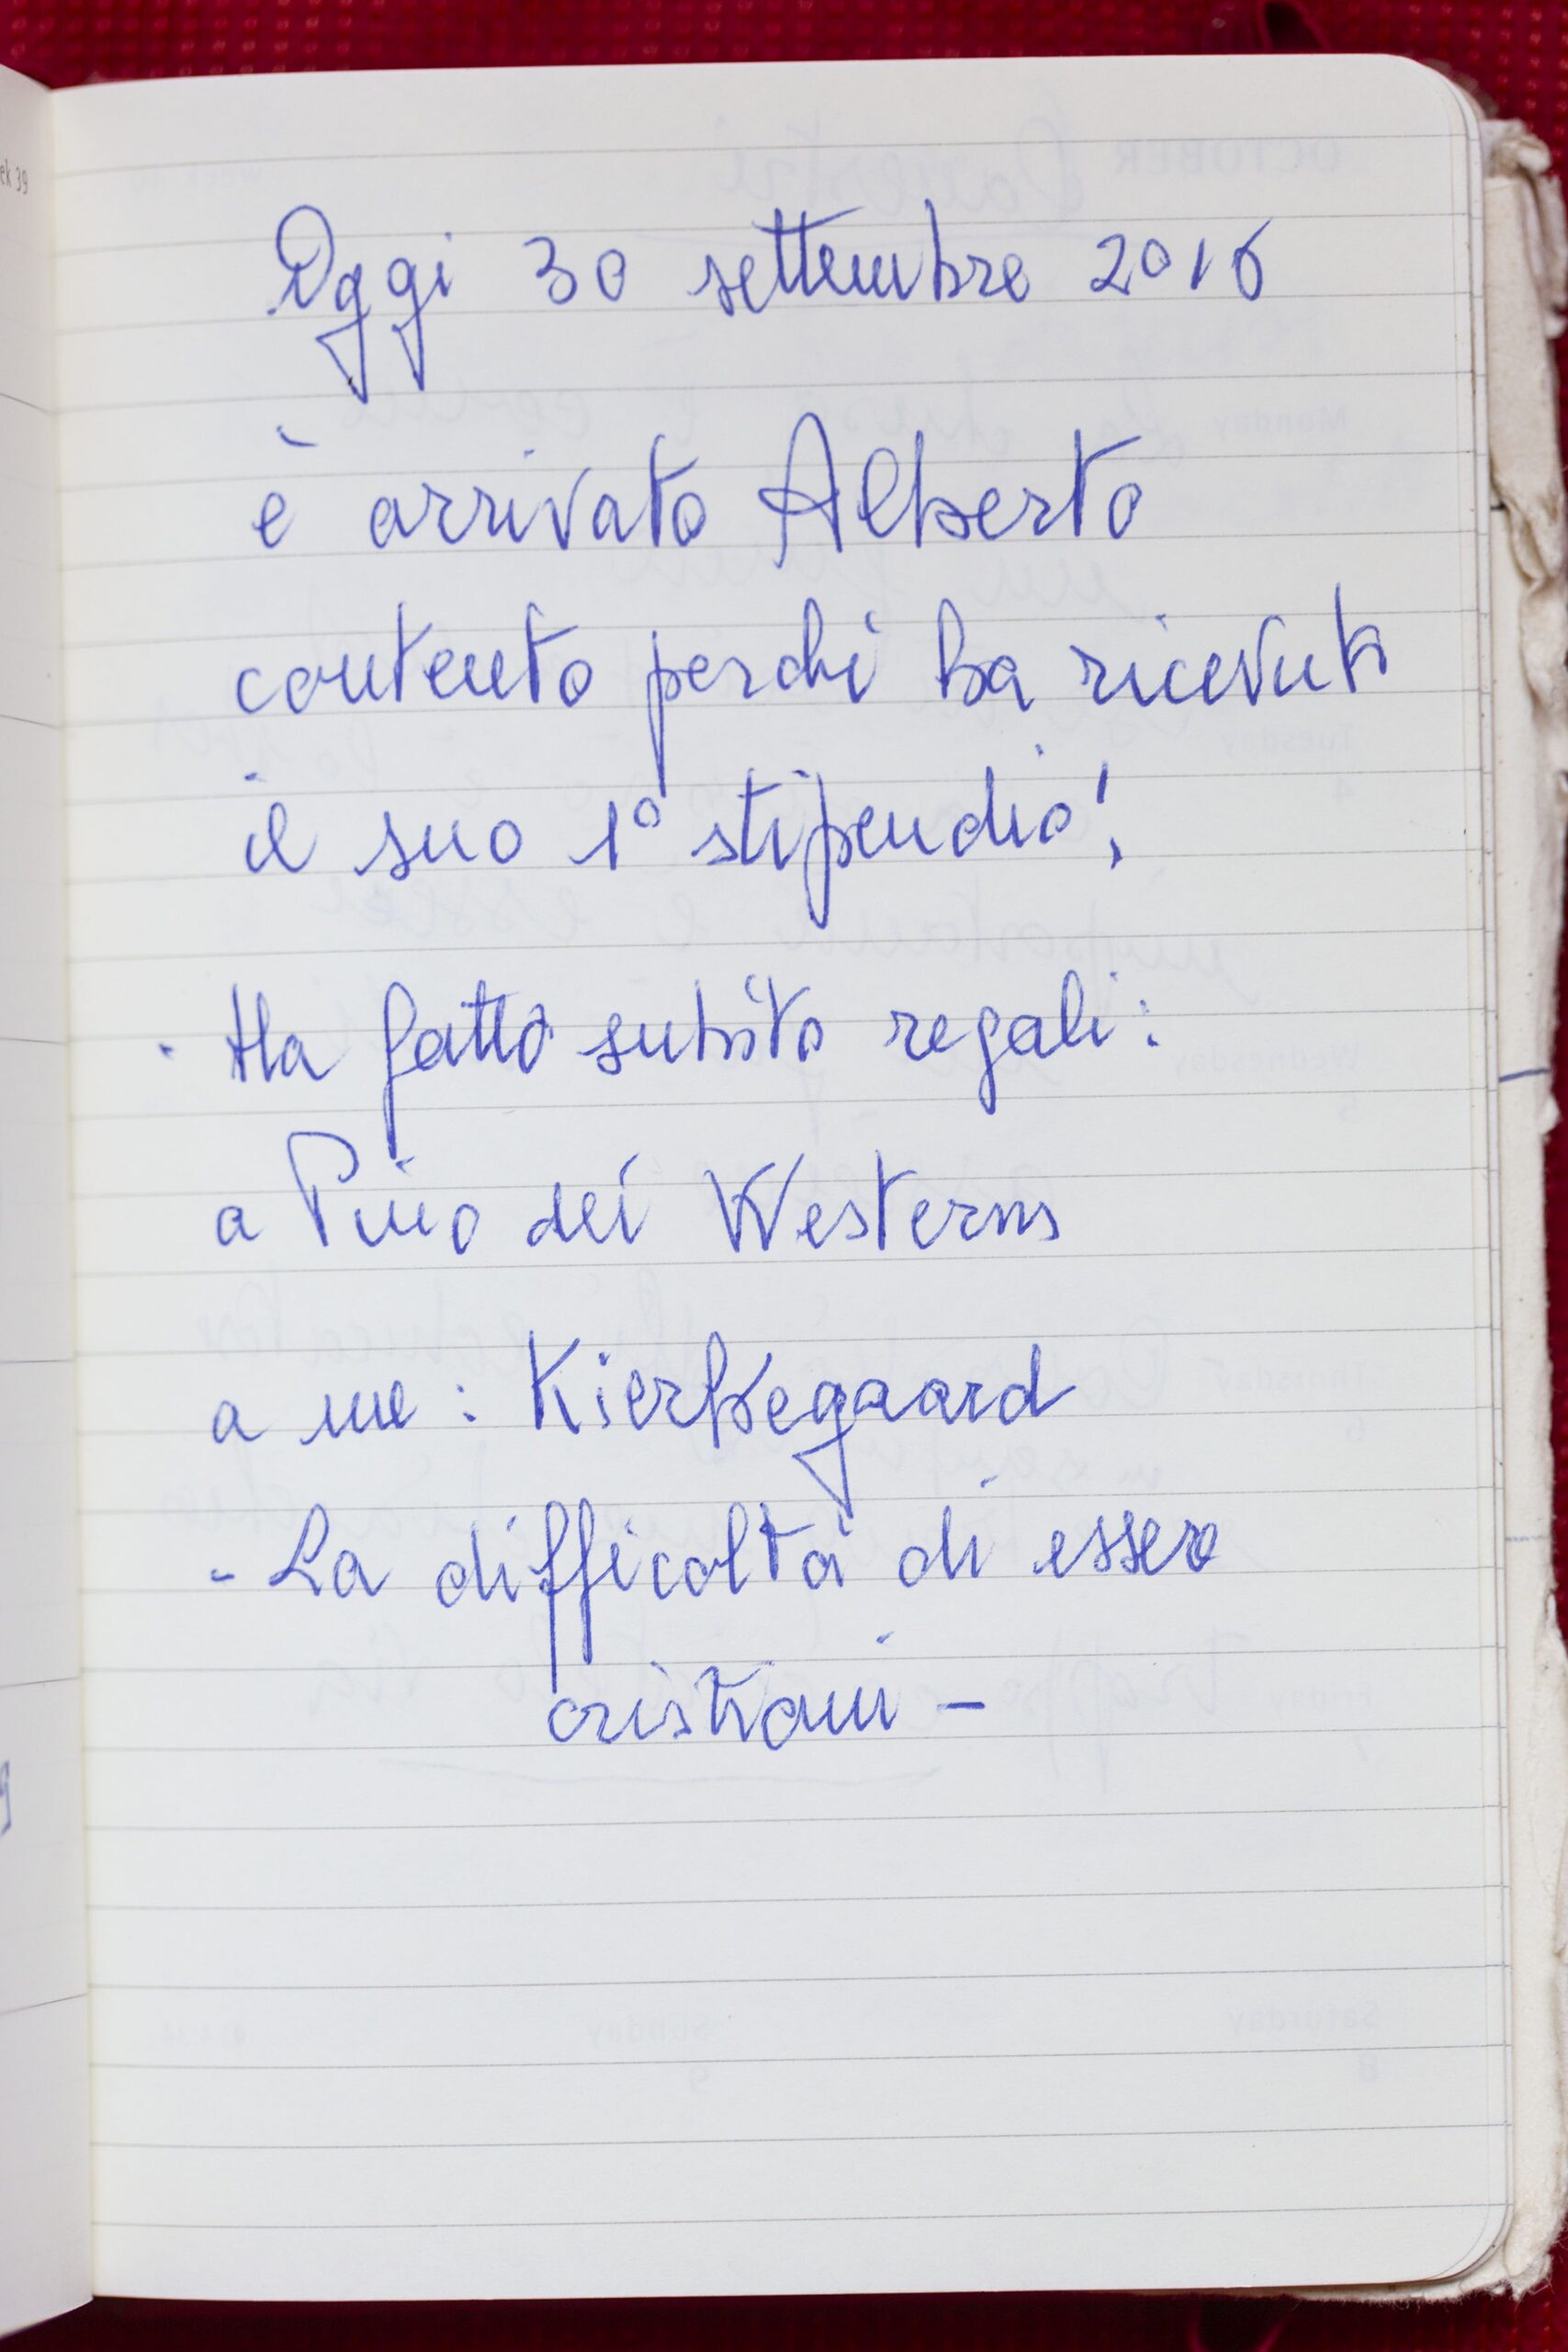 ek 39
Oggi 30 settembre 2016
è arrivato Alberto
contento perché ha ricevuto
il suo 1° stipendio!
· Ha fatto subito regali:
a Pino dei Westerns
a me: Kierkegaard
- La difficoltà di essere
cristiani -